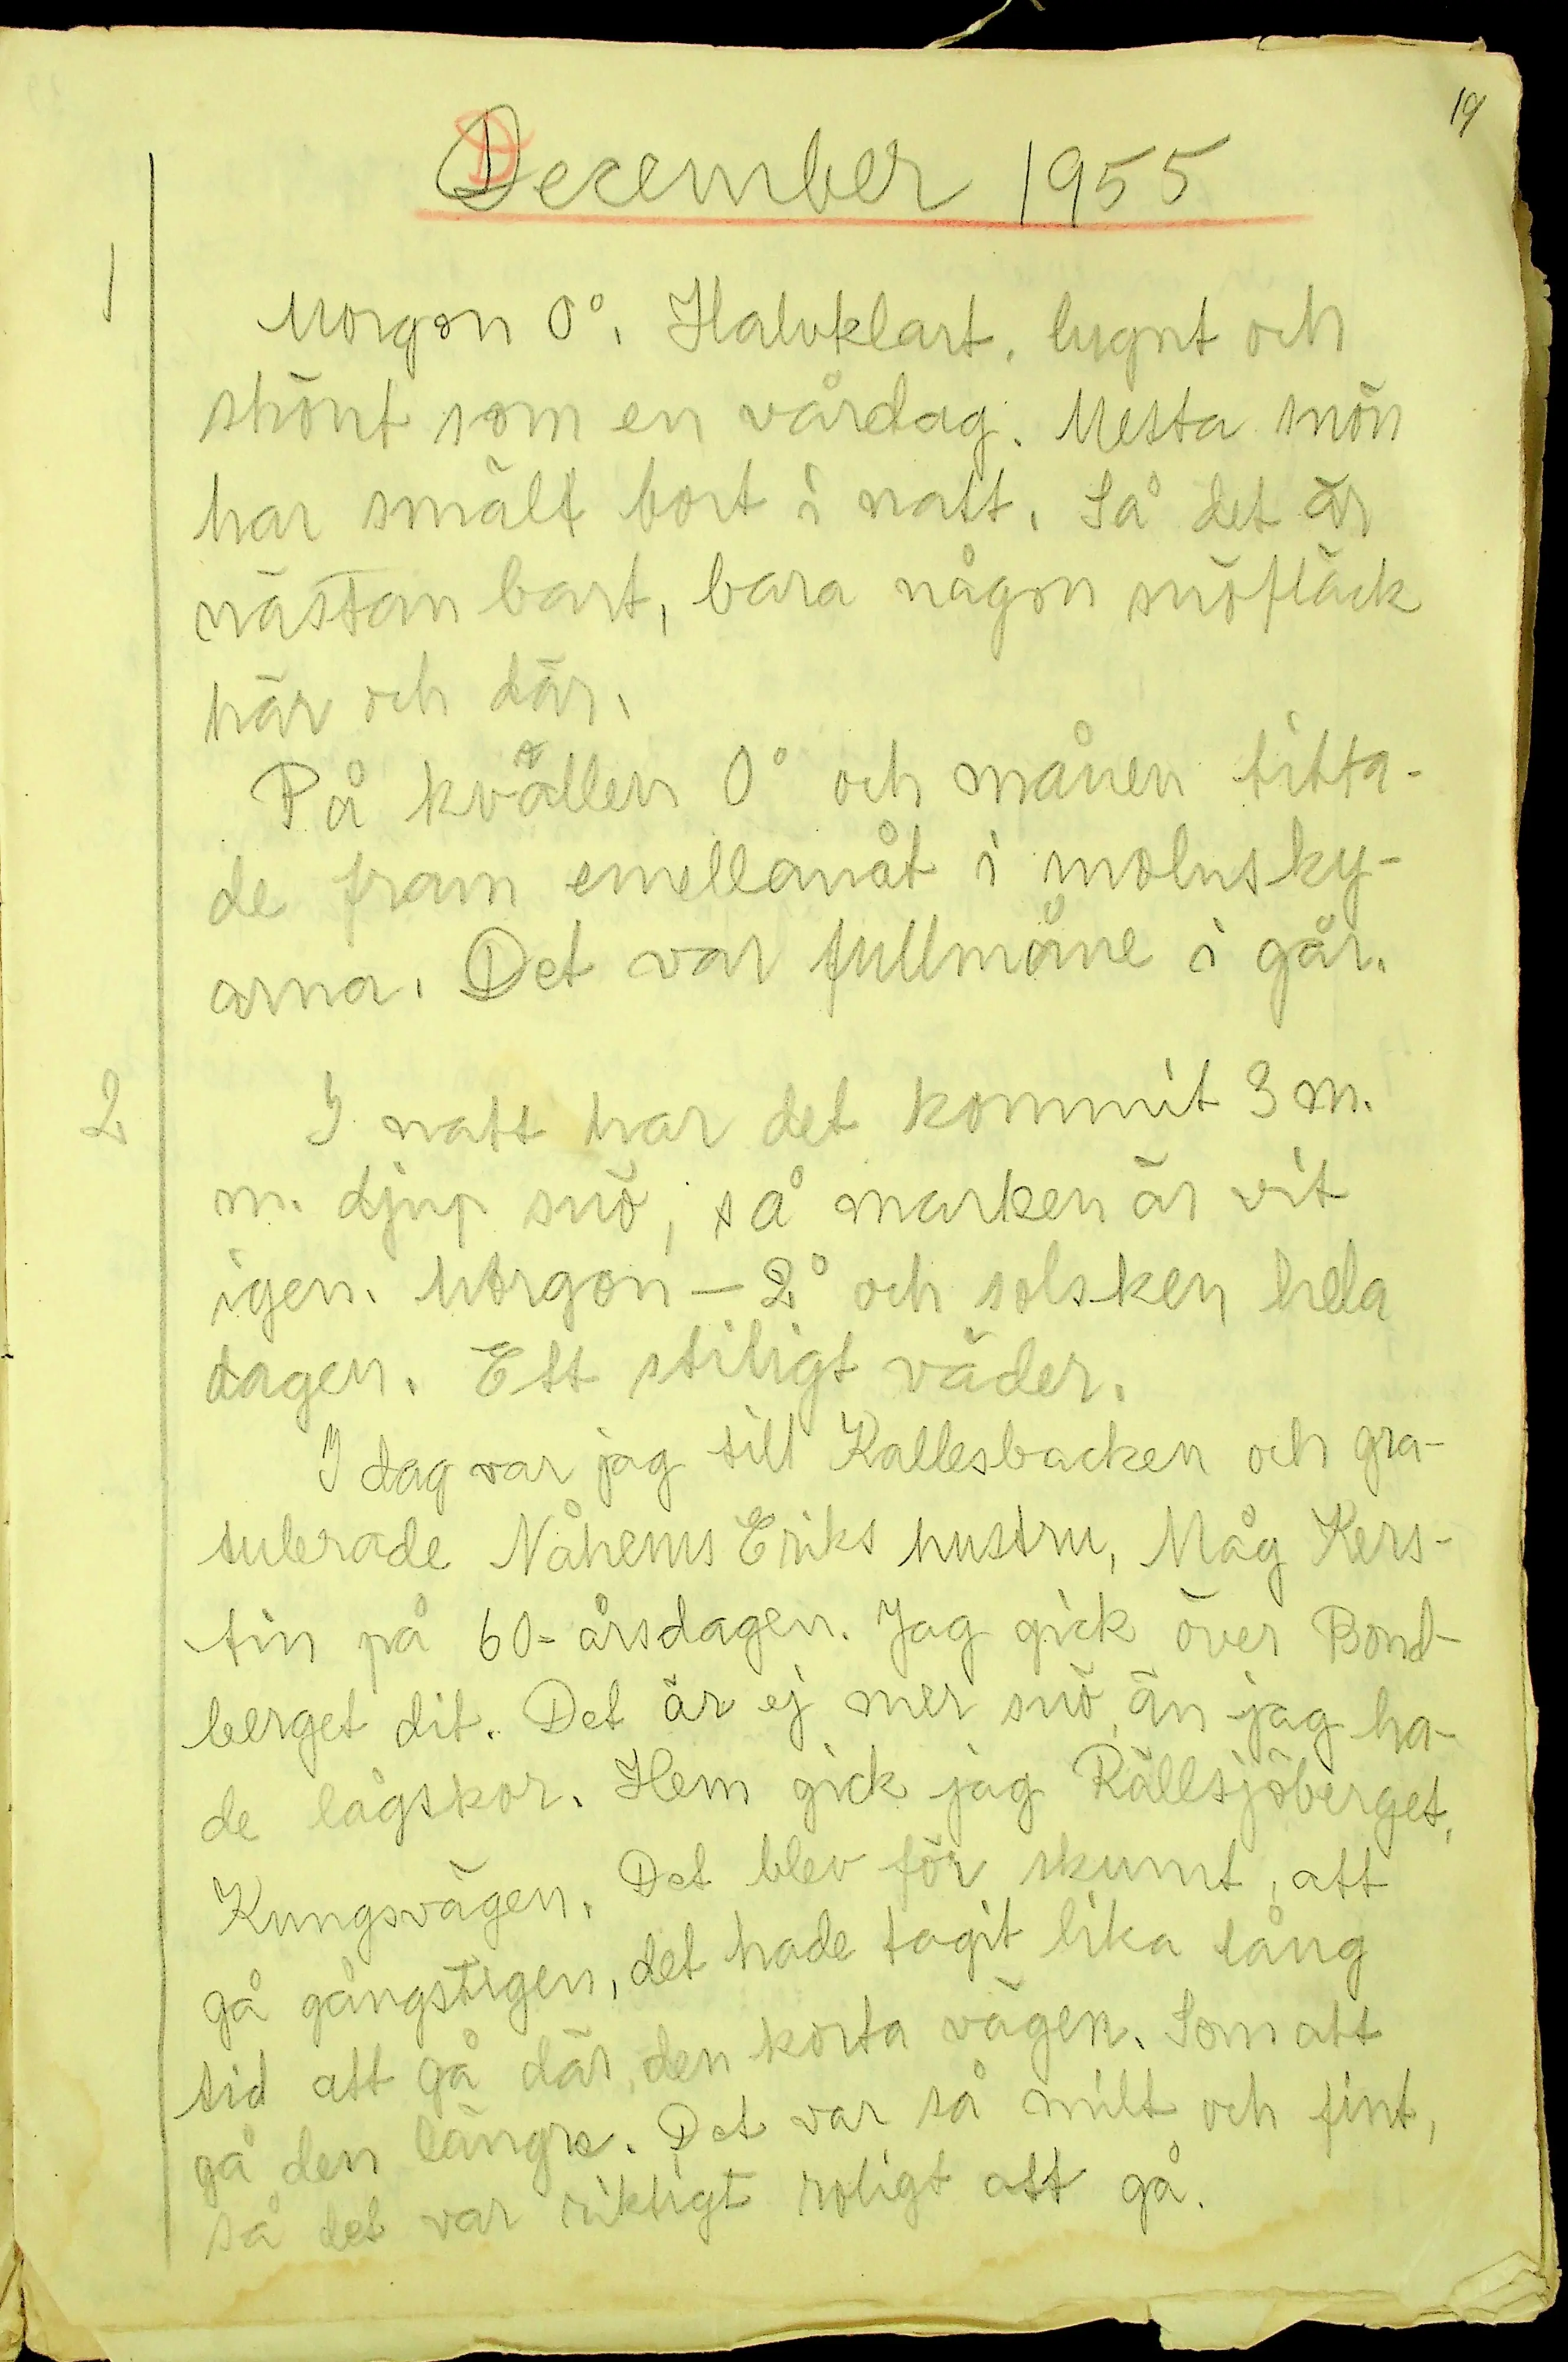 19
December 1955
1
Morgon 0°. Halvklart, lugnt och
skönt som en vårdag. Mesta snön
har smält bort i natt. Så det är
nästan bart, bara någon snöfläck
här och där.
På kvällen 0° och månen titta-
de fram emellanåt i molnsky-
arna. Det var fullmåne i går.
2
I natt har det kommit 3 m.
m. djup snö, så marken är vit
igen. Morgon - 2° och solsken hela
dagen. Ett stiligt väder.
I dag var jag till Kallesbacken och gra-
tulerade Nåhems Eriks hustru, Måg Kers-
tin på 60-årsdagen. Jag gick över Bond-
berget dit. Det är ej mer snö, än jag ha-
de lågskor. Hem gick jag Rällsjöberget,
Kungsvägen. Det blev för skumt, att
gå gångstigen, det hade tagit lika lång
tid att gå där, den korta vägen. Som att
gå den längre. Det var så milt och fint,
så det var riktigt roligt att gå.